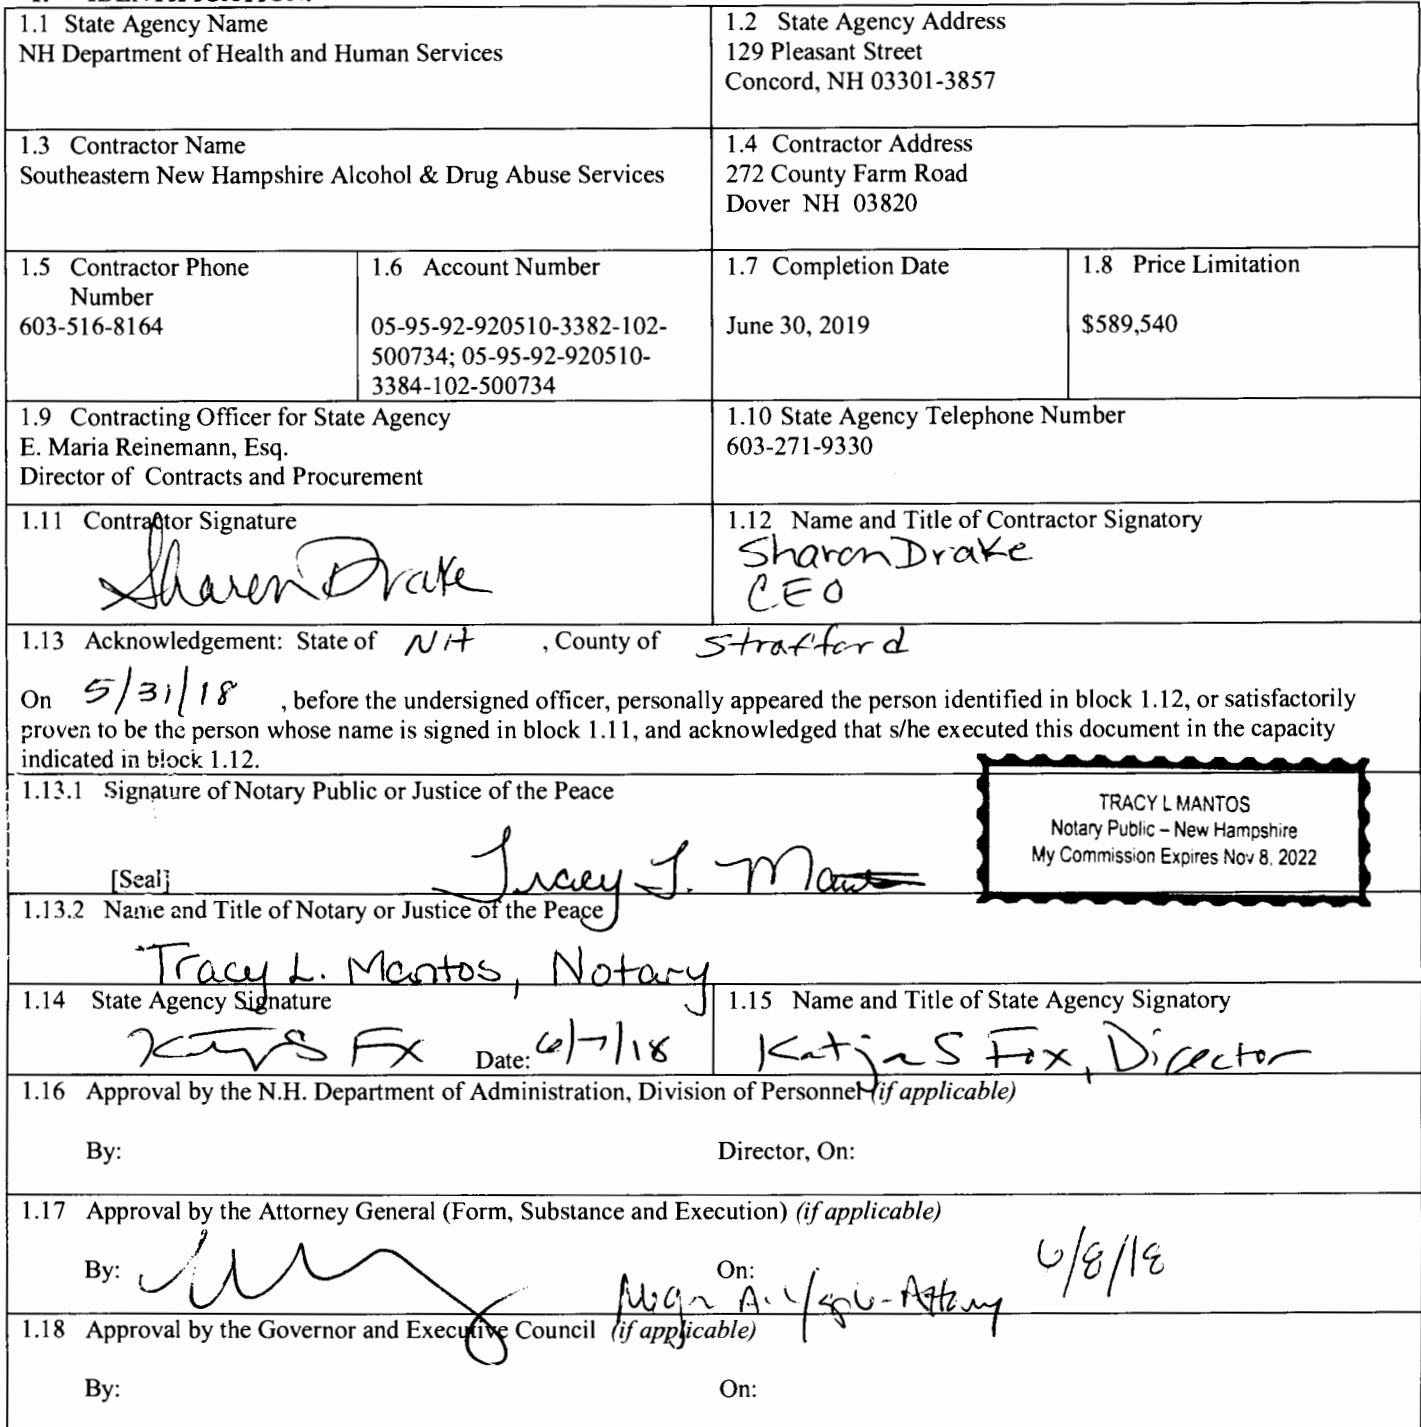 1.1 State Agency Name
NH Department of Health and Human Services
1.2 State Agency Address
129 Pleasant Street
Concord, NH 03301-3857
1.3 Contractor Name
Southeastern New Hampshire Alcohol & Drug Abuse Services
1.4 Contractor Address
272 County Farm Road
Dover NH 03820
1.5 Contractor Phone
Number
603-516-8164
1.6 Account Number
05-95-92-920510-3382-102-
500734; 05-95-92-920510-
3384-102-500734
1.7 Completion Date
June 30, 2019
1.8 Price Limitation
$589,540
1.9 Contracting Officer for State Agency
E. Maria Reinemann, Esq.
Director of Contracts and Procurement
1.10 State Agency Telephone Number
603-271-9330
1.11 Contractor Signature
Sharon Drake
1.12 Name and Title of Contractor Signatory
Sharon Drake
CEO
1.13 Acknowledgement: State of NH , County of Strafford
On 5/31/18 , before the undersigned officer, personally appeared the person identified in block 1.12, or satisfactorily
proven to be the person whose name is signed in block 1.11, and acknowledged that s/he executed this document in the capacity
indicated in block 1.12.
1.13.1 Signature of Notary Public or Justice of the Peace
[Seal] Tracy L. Mantos
TRACY L MANTOS
Notary Public – New Hampshire
My Commission Expires Nov 8, 2022
1.13.2 Name and Title of Notary or Justice of the Peace
Tracy L. Mantos, Notary
1.14 State Agency Signature
Date: 6/7/18
1.15 Name and Title of State Agency Signatory
Katja S Fox, Director
1.16 Approval by the N.H. Department of Administration, Division of Personnel (if applicable)
By: Director, On:
1.17 Approval by the Attorney General (Form, Substance and Execution) (if applicable)
By: On: 6/8/18
A. - Attorney
1.18 Approval by the Governor and Executive Council (if applicable)
By: On: